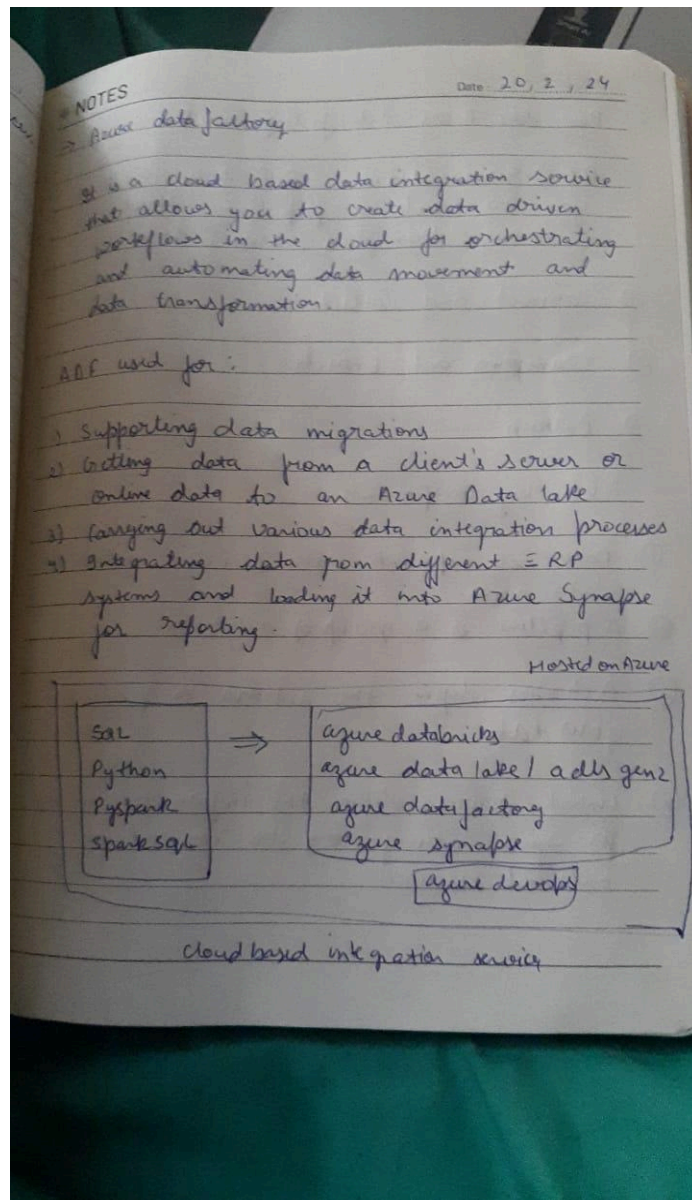 NOTES
Date 20, 2, 24
→ Azure data factory
It is a cloud based data integration service
that allows you to create data driven
workflows in the cloud for orchestrating
and automating data movement and
data transformation.
ADF used for:
1) Supporting data migrations
2) Getting data from a client's server or
online data to an Azure Data lake
3) Carrying out various data integration processes
4) Integrating data from different ERP
systems and loading it into Azure Synapse
for reporting.
Hosted on Azure
SQL
Python
Pyspark
Spark SQL
⇒
azure databricks
azure data lake / adls gen2
azure datafactory
azure synapse
azure devops
Cloud based integration service